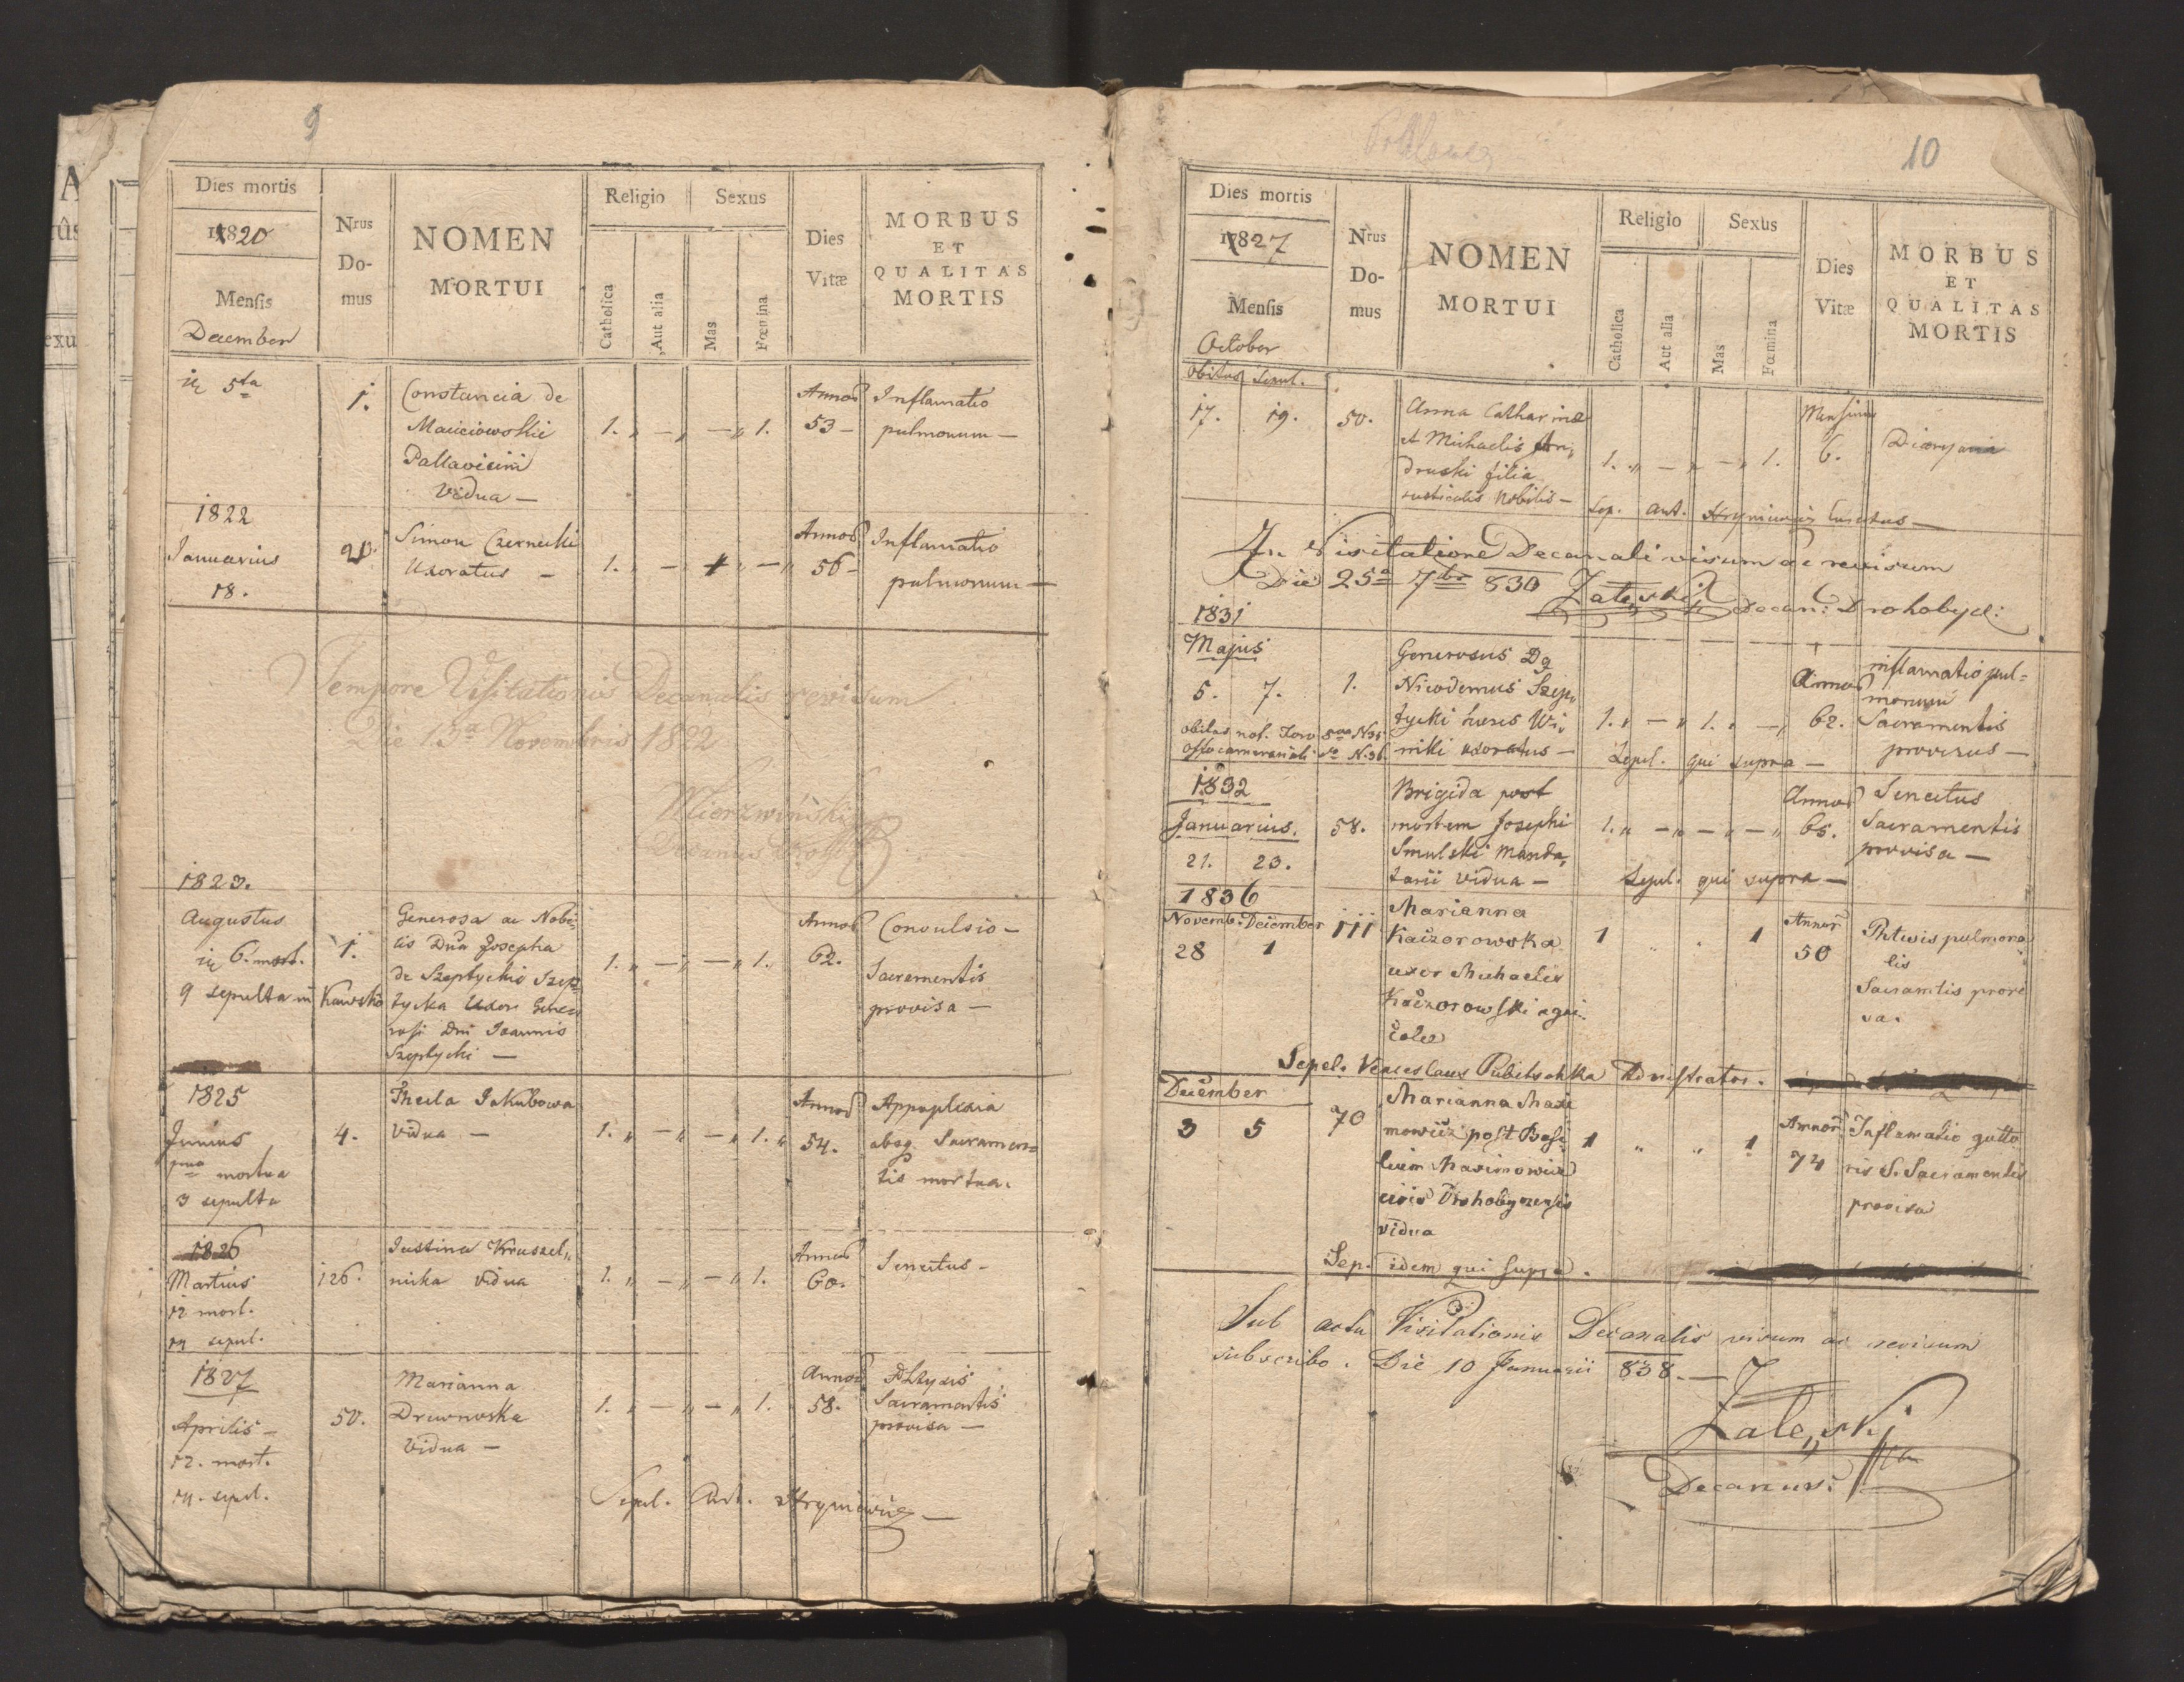 9
Dies mortis
1820
Mensis
December
Nrus
Do-
mus
NOMEN
MORTUI
Religio
Sexus
Catholica
Aut alia
Mas
Fœmina
Dies
Vitæ
MORBUS
ET
QUALITAS
MORTIS
5ta
1.
Constancia de
Maiciowskie
Pallavicini
Vidua —
1. „ — „ — „ 1.
Annos
53 —
Inflamatio
pulmonum —
1822
Januarius
18.
20.
Simon Czernecki
Uxoratus —
Annos
56 —
Inflamatio
pulmonum —
Tempore Visitationis Decanalis revisum
Die 13a Novembris 1822
Mierzwiński
Decanus
1823.
Augustus
6. mort.
9 sepulta in
1.
Kawsko
Generosa ac Nobi-
lis Dna Josepha
de Szeptyckie Szep-
tycka Uxor Gene-
rosi Dni Joannis
Szeptycki —
1. „ — „ — „ 1.
Annos
62.
Convulsio —
Sacramentis
provisa —
1825
Junius
1ma mortua
3 sepulta
4.
Thecla Jakubowa
Vidua —
1. „ — „ — „ 1. „
Annos
54.
Appoplexia
absq. Sacramen-
tis mortua.
1826
Martius
12 mort.
14 sepul.
126.
Justina Kruszel„
nicka Vidua
1. „ — „ — „ 1.
Annos
60.
Senectus —
1827
Aprilis —
12. mort.
14. sepul.
50.
Marianna
Drewnoska
Vidua —
1. „ — „ — „ 1.
Annos
58.
Phtysis
Sacramentis
provisa —
Sepul. Ant. Hryniewicz —
10
Dies mortis
1827
Mensis
October
Nrus
Do-
mus
NOMEN
MORTUI
Religio
Sexus
Catholica
Aut alia
Mas
Fœmina
Dies
Vitæ
MORBUS
ET
QUALITAS
MORTIS
obitus sepul.
17. 19.
50.
Anna Catharinæ
et Michaelis An„
druski filia
rusticalis Nobilis —
1. „ — „ — „ 1.
Mensium
6.
Sep. Ant. Hryniewicz Curatus —
In Visitatione Decanali visum ac revisum
Die 25a 7br 830 Zaleski Decan: Drohobyc:
1831
Majus
5. 7.
1.
Generosus Ds
Nicodemus Szep„
tycki heres Wi„
niki uxoratus —
1. „ — „ 1. „ — „
Annos
62.
inflamatio pul-
monum
Sacramentis
provisus —
Sepul. qui supra —
1832
Januarius.
21. 23.
58.
Brigida post
mortem Josephi
Smulski Manda„
tarii Vidua —
1. „ — „ — „ — „
Annos
65.
Senectus
Sacramentis
provisa —
Sepul. qui supra —
1836
Novemb. December
28 1
111
Marianna
Kaczorowska
uxor Michaelis
Kaczorowski agri-
colæ
1 „ „ 1
Annor
50
Phtisis pulmona
lis
Sacramtis provi
sa.
Sepel. Venceslaus Pubitschka Admstrator.
December
3 5
70
Marianna Maxi
mowicz post Basi
lium Maximowicz
civis Drohobyczensis
vidua
1 „ „ 1
Annor
74
Inflamatio guttu
ris S. Sacramentis
provisa
Sep. idem qui supra.
Sub actu Visitationis Decanalis visum ac revisum
subscribo. Die 10 Januarii 838. —
Zaleski
Decanus.